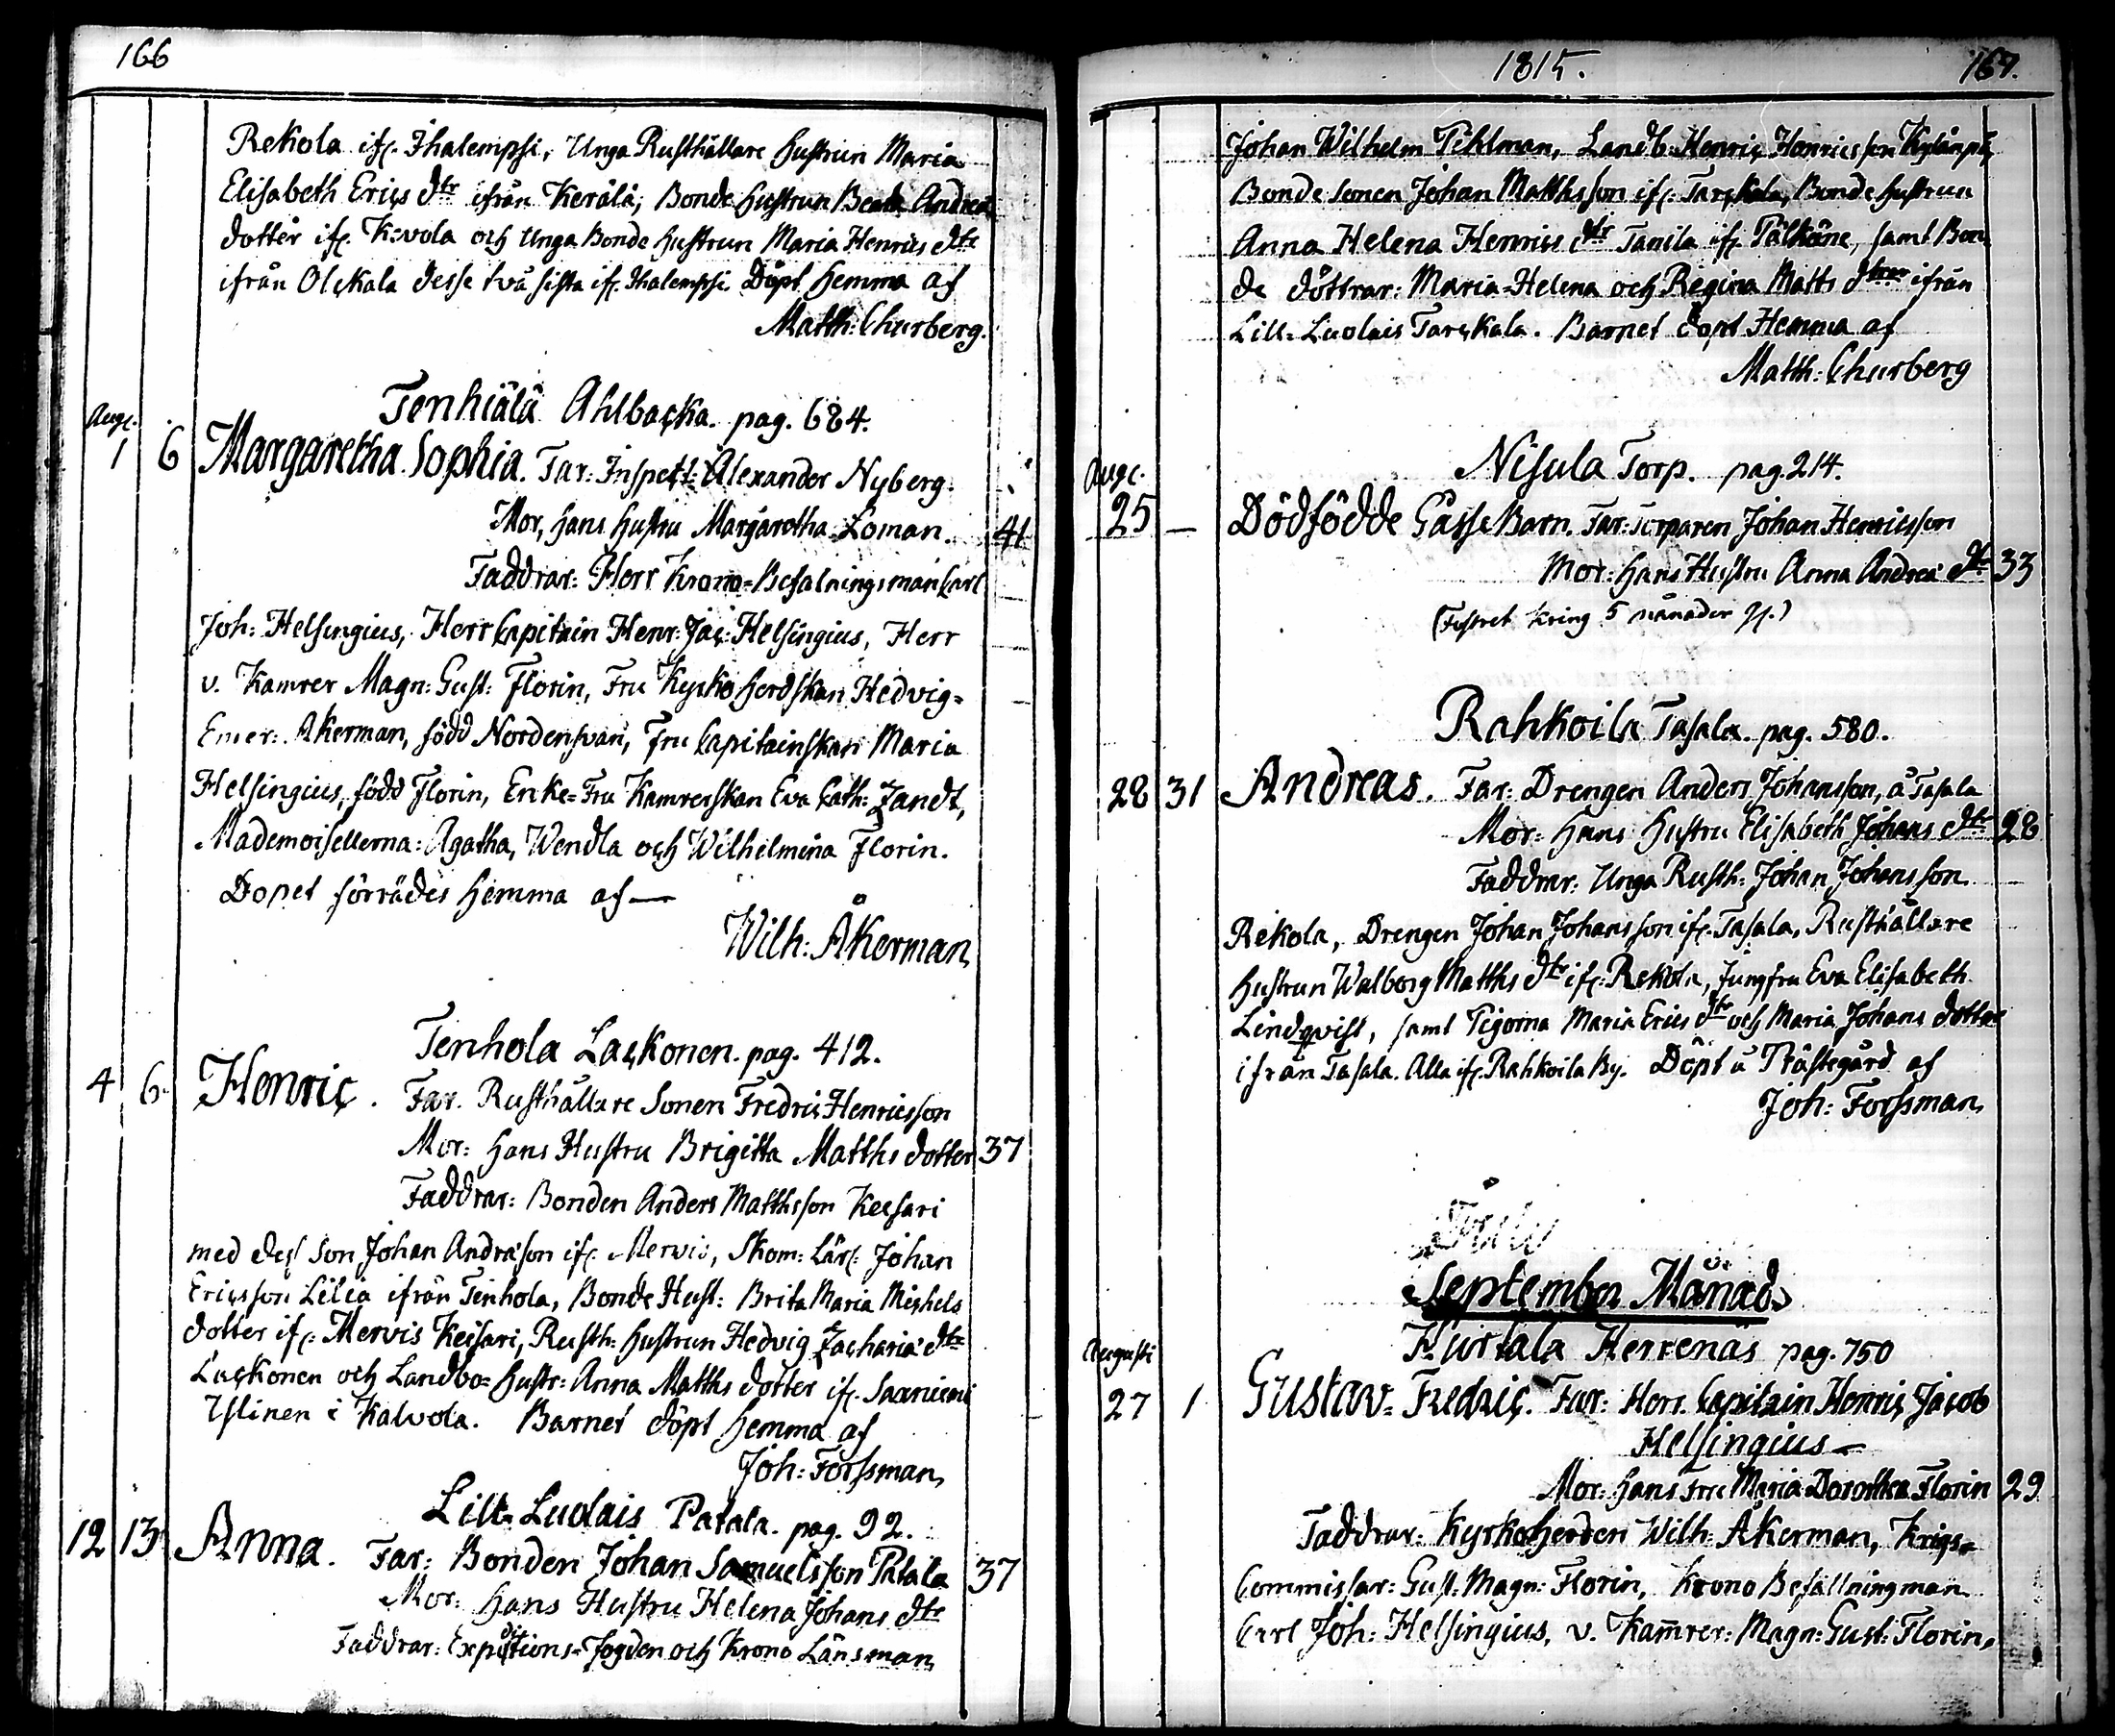 166
Rekola if. Ihalempsi, Unga Rusthållare hustrun Maria
Elisabeth Erics dtr ifrån Kerälä, Bonde hustrun Beata Andreæ
dotter if. K:vola och Unga Bonde hustrun Maria Henrics dtr
ifrån Olckala desse två sista if. Ihalempsi. Döpt hemma af
Matth: Churberg.
Tenhiälä Ahlbacka. pag. 684.
Aug.
1 6 Margaretha Sophia. Far: Inspekt: Alexander Nyberg.
Mor, hans hustru Margaretha Loman. 41
Faddrar: Herr Krono=Befalningsman Carl
Joh: Helsingius, Herr Capitain Henr: Jac: Helsingius, Herr
v. Kamrer Magn: Gust: Florin, Fru Kyrkoherdskan Hedvig=
Emer: Akerman, född Nordensvan, Fru Capitainskan Maria
Helsingius, född Florin, Enke=Fru Kamrerskan Eva Cath: Zandt,
Mademoisellerna: Agatha, Wendla och Wilhelmina Florin.
Dopet förrädes hemma af—
Wilh: Åkerman
Tenhola Lackonen. pag. 412.
4 6 Henric. Far. Rusthållare Sonen Fredric Henricsson
Mor: Hans Hustru Brigitta Matths dotter 37
Faddrar: Bonden Anders Mattsson Keesari
med des son Johan Andra'son if. Mervis, Skom: Lärl: Johan
Ericsson Lilia ifrån Tenhola, Bonde Hust: Brita Maria Michels
dotter if. Mervis Keisari, Rusth: hustrun Hedvig Zacharia' dtr
Lackonen och Landbo= hustr: Anna Matths dotter if. Saaniemi
Yslinen i Kalvola. Barnet döpt hemma af
Joh: Forssman
Lill= Luolais Patala. pag. 92.
12 13 Anna. Far: Bonden Johan Samuelsson Patala 37
Mor: Hans Hustru Helena Johans dtr
Faddrar: Expeditions=Fogden och Krono Länsman
1815. 167.
Johan Wilhelm Pihlman, Landb: Henric Henricsson Kylänpä,
Bonde sonen Johan Matthsson if. Tarckala, Bonde hustrun
Anna Helena Henrics dtr Tanila if. Pälkäne, samt Bon
de döttrar: Maria=Helena och Regina Matts dtrar ifrån
Lill= Luolais Tarckala. Barnet döpt Hemma af
Matth: Churberg
Nisula Torp. pag. 214.
Aug.
25 — Dödfödde Gåsse Barn. Far: Torparen Johan Henricsson
Mor: Hans Hustru Anna Andreæ dtr 33
(Fostret kring 5 månader gl.)
Rahkoila Tasala. pag. 580.
28 31 Andreas. Far: Drengen Anders Johansson, å Tasala
Mor: Hans Hustru Elisabeth Johans dtr 28
Faddrar: Unga Rusth: Johan Johansson
Rekola, Drengen Johan Johansson if. Tasala, Rusthållare
hustrun Walborg Matths dtr if. Rekola, Jungfru Eva Elisabeth
Lindqvist, samt Pigorna Maria Erics dtr och Maria Johans dotter
ifrån Tasala. Alla if. Rahkoila By. Döpt å Prästegård af
Joh: Forssman
September Månad
Kurtala Herrenäs pag. 750
Augusti
27 1 Gustav= Fredric. Far: Herr Capitain Henric Jacob
Helsingius—
Mor: Hans Fru Maria Dorothea Florin 29
Faddrar: Kyrkoherden Wilh: Åkerman, Krigs=
Commissar: Gust: Magn: Florin, Krono Befallningman
Carl Joh: Helsingius, v. Kamrer: Magn: Gust: Florin,